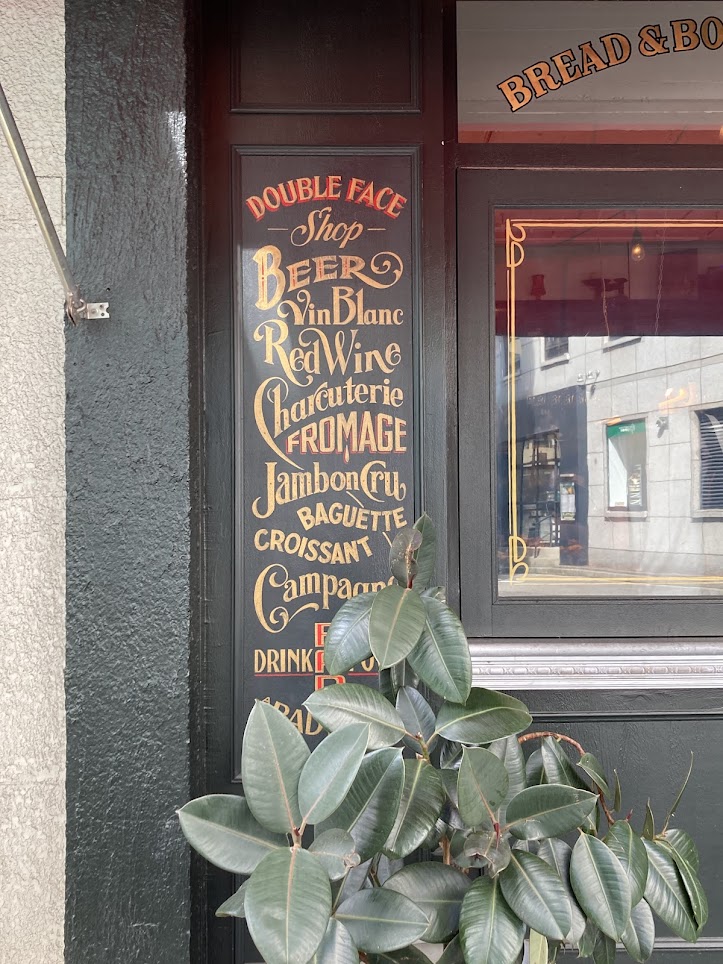 BREAD & BO
DOUBLE FACE
Shop
BEER
Vin Blanc
Red Wine
Charcuterie
FROMAGE
Jambon Cru
BAGUETTE
CROISSANT
Campagn
DRINK